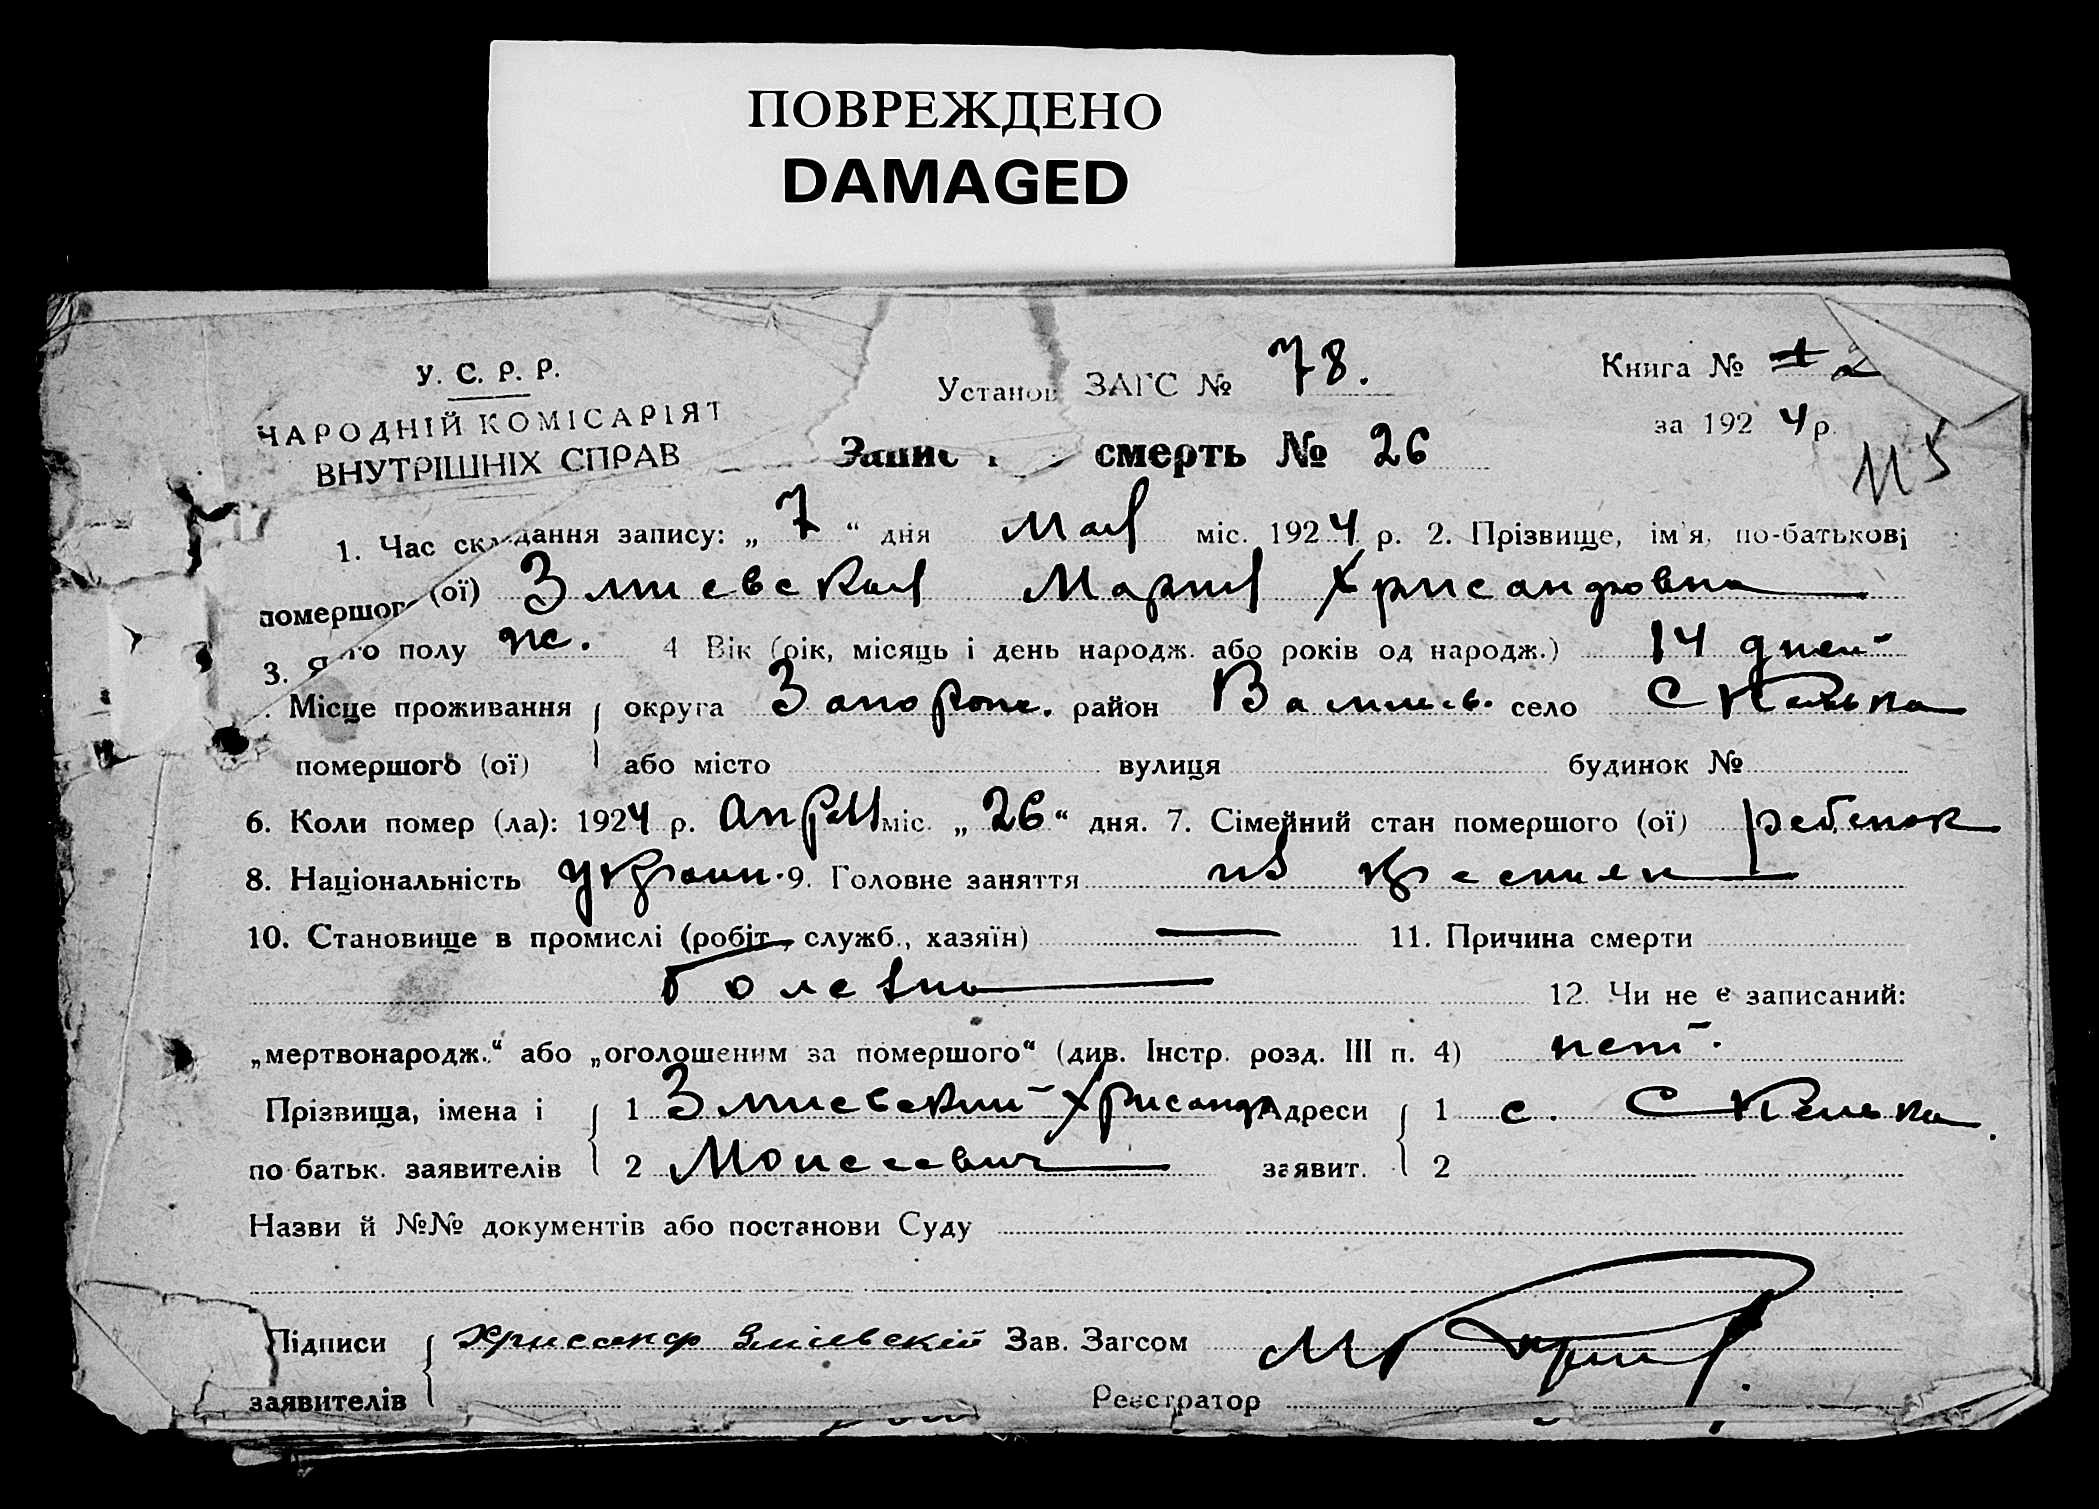 ПОВРЕЖДЕНО
DAMAGED
У. С. Р. Р.
НАРОДНІЙ КОМІСАРІЯТ
ВНУТРІШНІХ СПРАВ
Установ ЗАГС № 78.
Книга № 1 2
за 1924 р.
Запис смерть № 26
115
1. Час складання запису: „ 7 “ дня Мая міс. 1924 р. 2. Прізвище, ім'я, по-батькові
помершого (ої) Змиевская Мария Хрисандровна
3. Якого полу ж. 4 Вік (рік, місяць і день народж. або років од народж.) 14 дней
. Місце проживання округа Запорож. район Василье. село Скелька
помершого (ої) або місто вулиця будинок №
6. Коли помер (ла): 1924 р. Апрель міс. „ 26 “ дня. 7. Сімейний стан помершого (ої) ребенок
8. Національність украин. 9. Головне заняття из крестьян
10. Становище в промислі (робіт., служб., хазяїн) — 11. Причина смерти
Болезнь 12. Чи не є записаний:
„мертвонародж.“ або „оголошеним за помершого“ (див. Інстр. розд. III п. 4) нет.
Прізвища, імена і 1 Змиевский Хрисанф Адреси 1 с. Скелька.
по батьк. заявителів 2 Моисеевич заявит. 2
Назви й №№ документів або постанови Суду
Підписи Хрисанф Зміевскій Зав. Загсом
заявителів Реєстратор